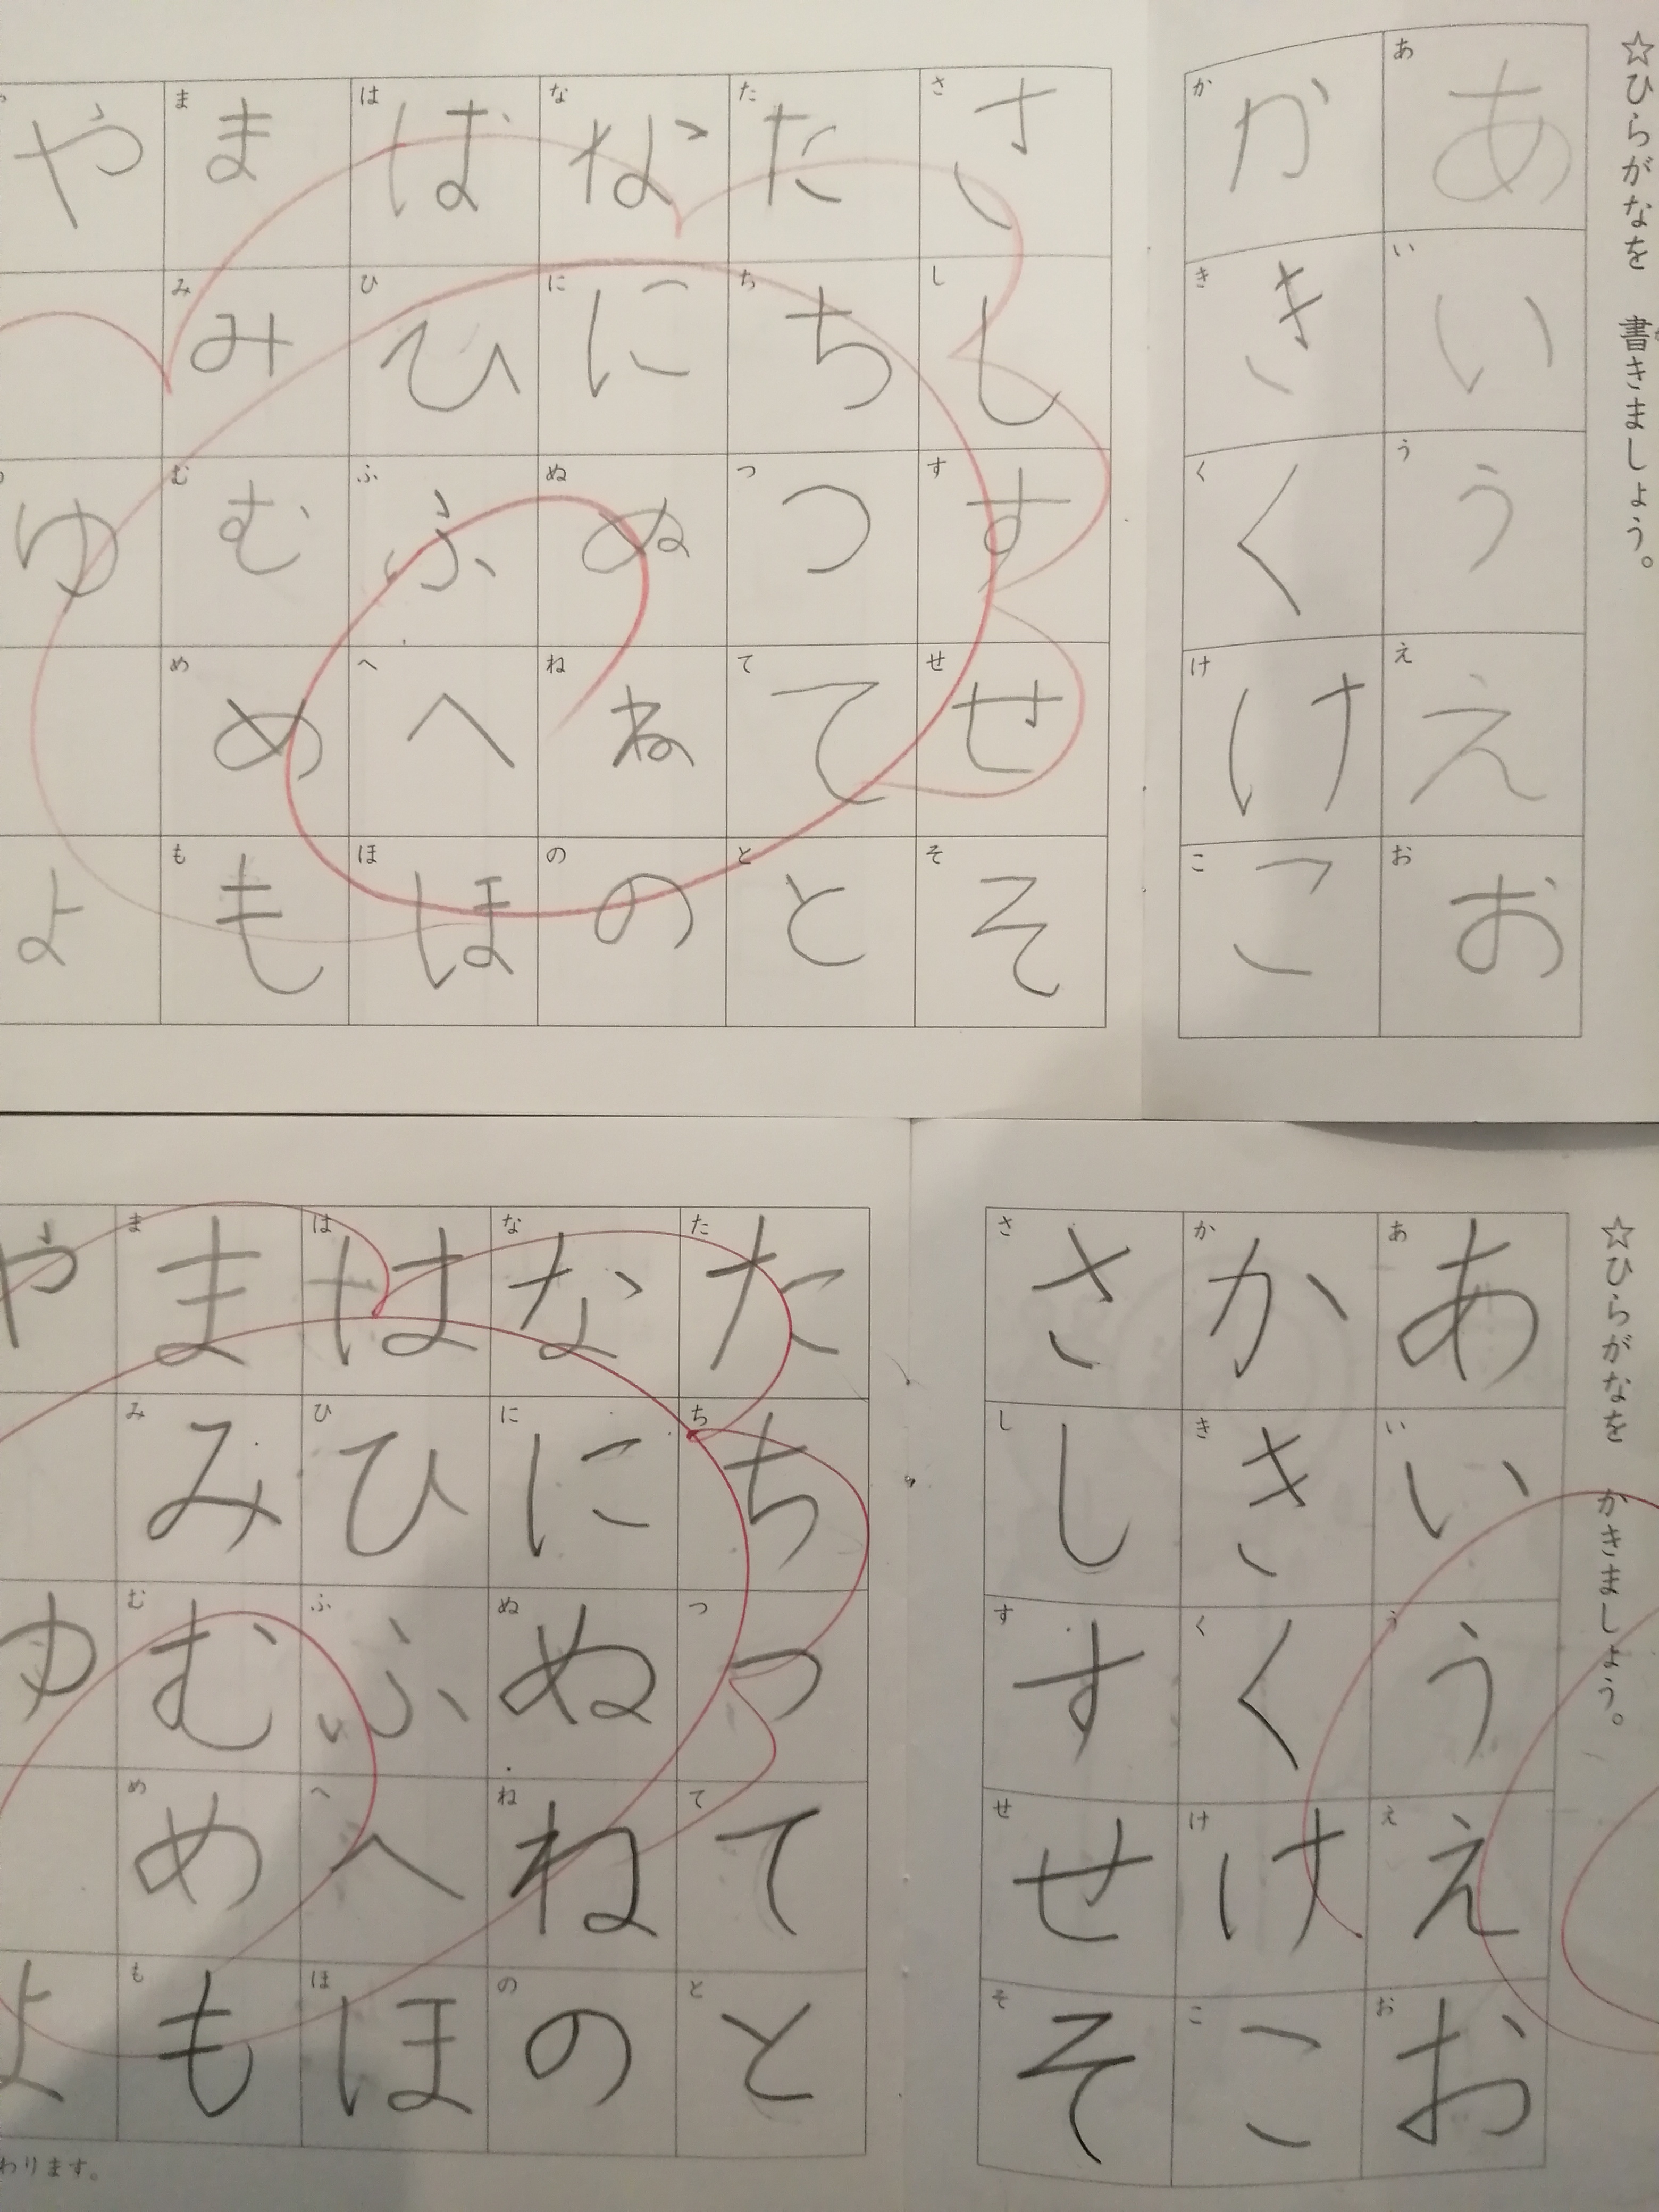 ☆ひらがなを 書きましょう。
あ あ い い う う え え お お
か か き き く く け け こ こ
さ さ し し す す せ せ そ そ
た た ち ち つ つ て て と と
な な に に ぬ ぬ ね ね の の
は は ひ ひ ふ ふ へ へ ほ ほ
ま ま み み む む め め も も
や ゆ よ
☆ひらがなを かきましょう。
あ あ い い う う え え お お
か か き き く く け け こ こ
さ さ し し す す せ せ そ そ
た た ち ち つ つ て て と と
な な に に ぬ ぬ ね ね の の
は は ひ ひ ふ ふ へ へ ほ ほ
ま ま み み む む め め も も
や ゆ よ
わります。